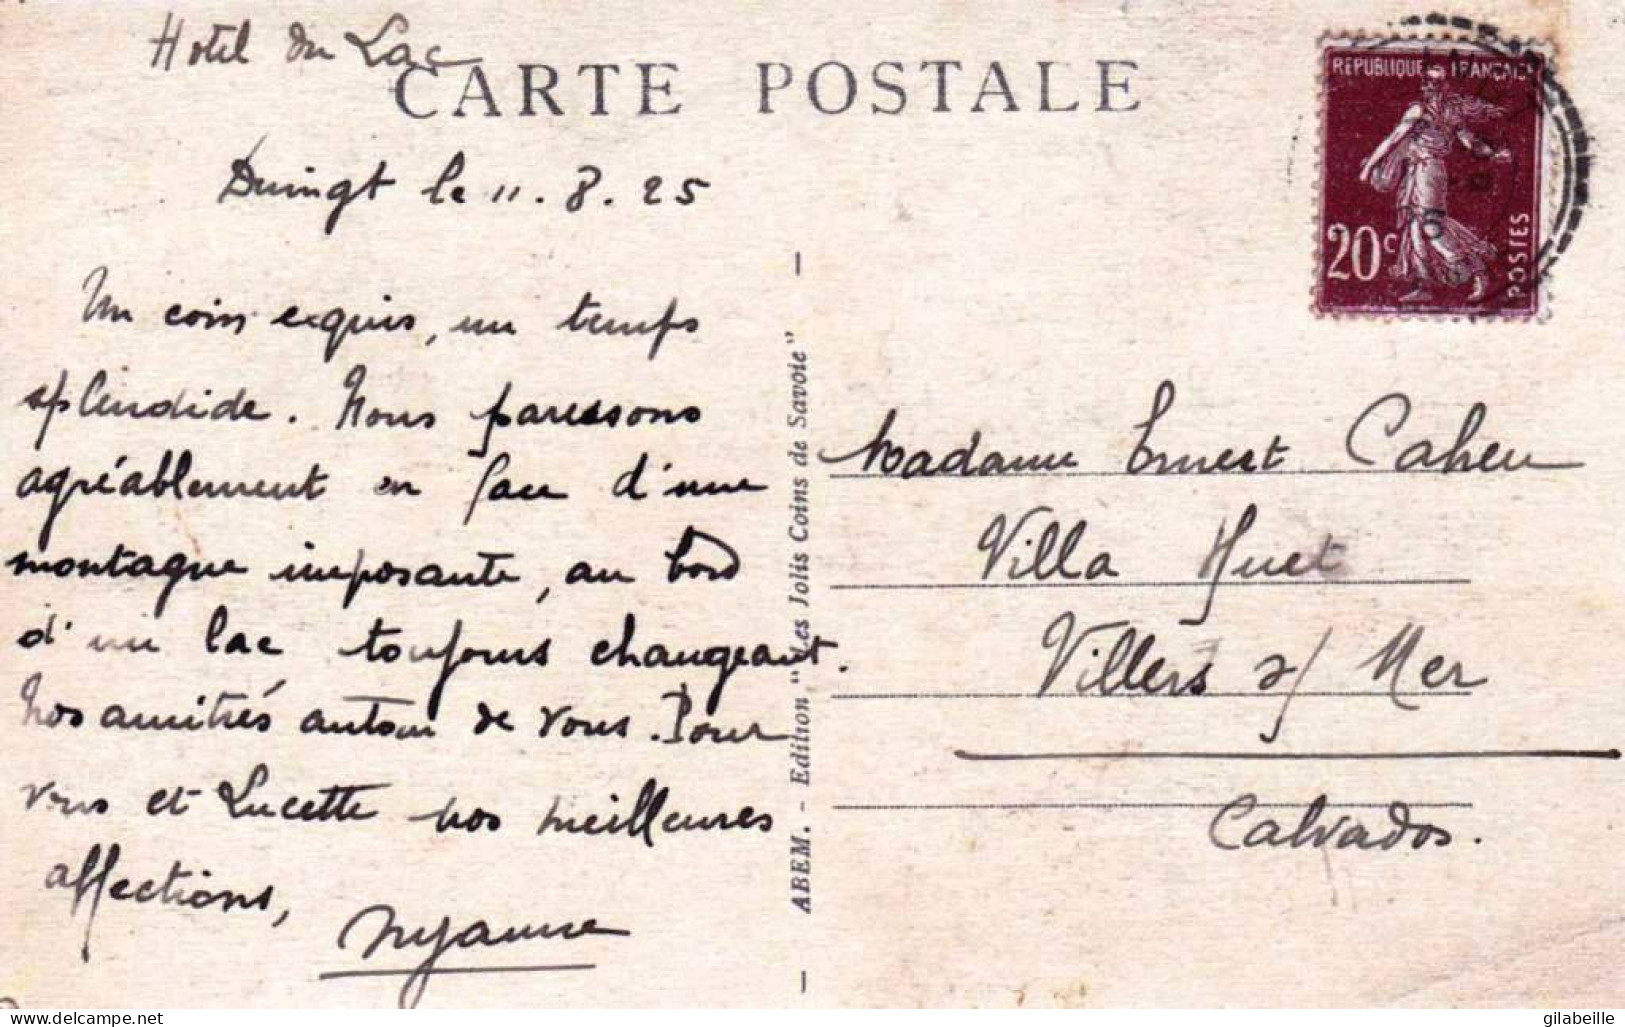 Hotel du Lac
CARTE POSTALE
Duingt le 11.8.25
Un coin exquis, un temps
splendide. Nous paressons
agréablement en face d'une
montagne imposante, au bord
d'un lac toujours changeant.
Nos amitiés autour de vous. Pour
vous et Lucette nos meilleures
affections,
ABEM. - Edition "Les Jolis Coins de Savoie"
REPUBLIQUE FRANÇAISE
20c
POSTES
Madame Ernest Cahen
Villa Huet
Villers s/ Mer
Calvados.
www.delcampe.net
gilabeille